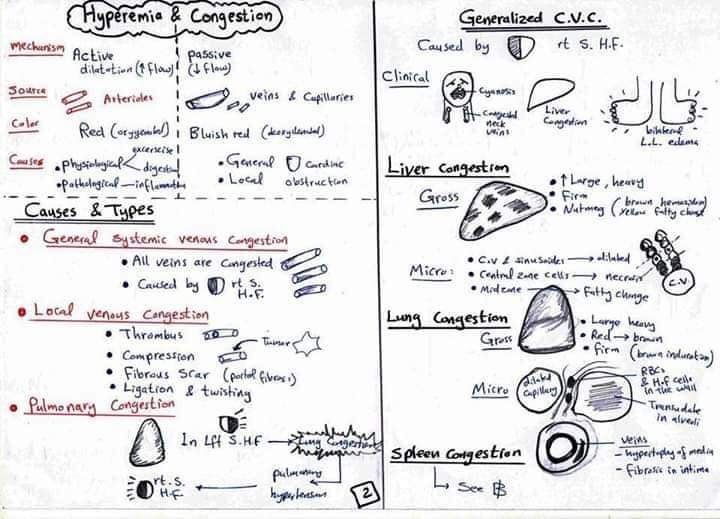 Hyperemia & Congestion
Mechanism
Active
dilatation (↑ flow)
passive
(↓ flow)
Source
Arterioles
Veins & Capillaries
Color
Red (oxygenated)
Bluish red (deoxygenated)
Causes
• physiological
excercise
digestion
• pathological — inflammation
• General
Cardiac
• Local
obstruction
Causes & Types
• General systemic venous congestion
• All veins are congested
• Caused by rt S.
H.F.
• Local venous congestion
• Thrombus
• Compression
Tumor
• Fibrous Scar (portal fibrosis)
• Ligation & twisting
• Pulmonary Congestion
In Lft S.H.F
Lung Congestion
pulmonary
hypertension
rt. S.
H.F
2
Generalized C.V.C.
Caused by rt S. H.F.
Clinical
Cyanosis
Congested
neck
veins
Liver
Congestion
bilateral
L.L. edema
Liver Congestion
Gross
• ↑ Large, heavy
• Firm
• Nutmeg (brown hemosiderin
yellow fatty change
Micro:
• C.V & sinusoides → dilated
• Central zone cells → necrosis
• Midzone → Fatty change
C.V.
Lung Congestion
Gross
• Large heavy
• Red → brown
• Firm (brown induration)
Micro
dilated
capillary
RBCs
& H.F cells
in the wall
Transudate
in alveoli
Veins
- hypertophy of media
- Fibrosis in intima
Spleen Congestion
See